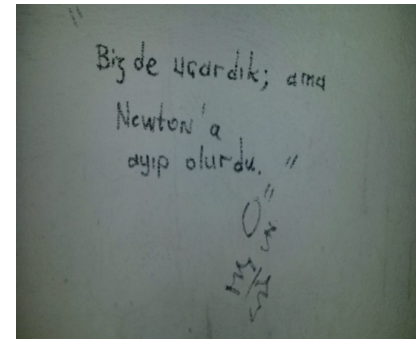 "
Biz de uçardık; ama
Newton'a
ayıp olurdu. "